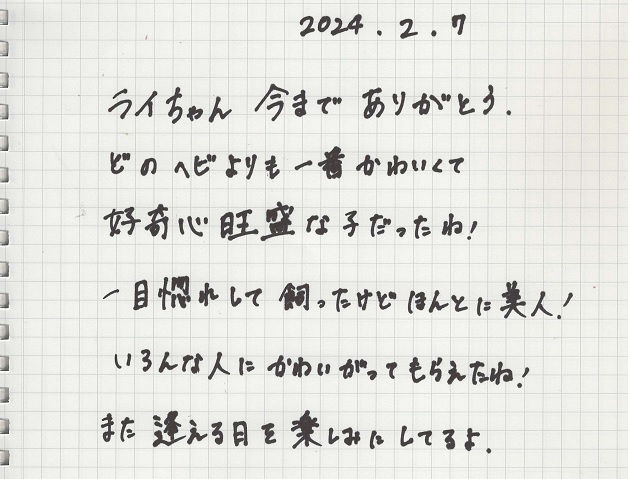 2024.2.7
ライちゃん 今まで ありがとう.
どのヘビよりも一番かわいくて
好奇心旺盛な子だったね!
一目惚れして飼ったけどほんとに美人!
いろんな人にかわいがってもらえたね!
また逢える日を楽しみにしてるよ.